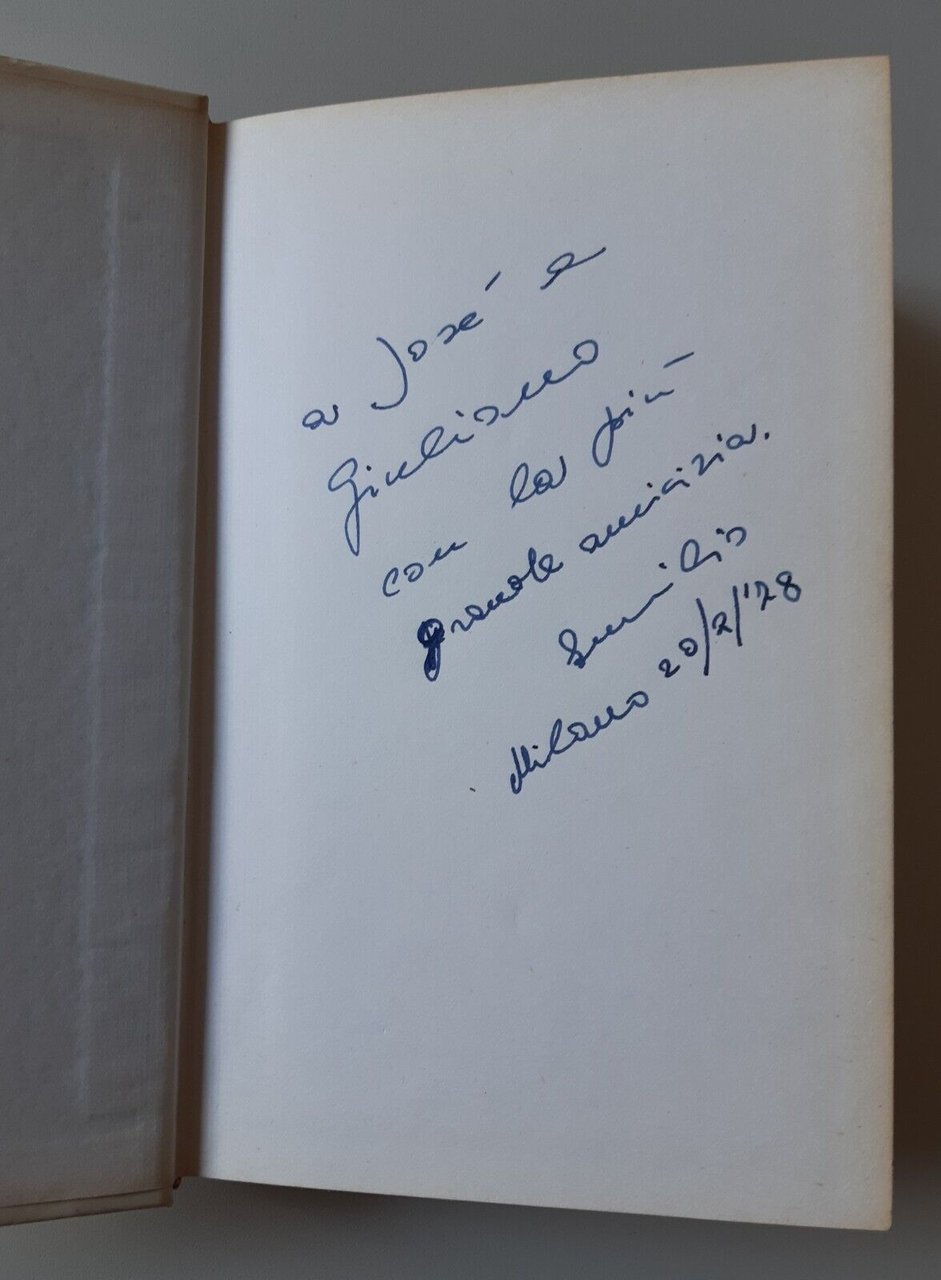 a José e
Giuliano
con la più
grande amicizia.
Emilio
Milano 20/2/'78